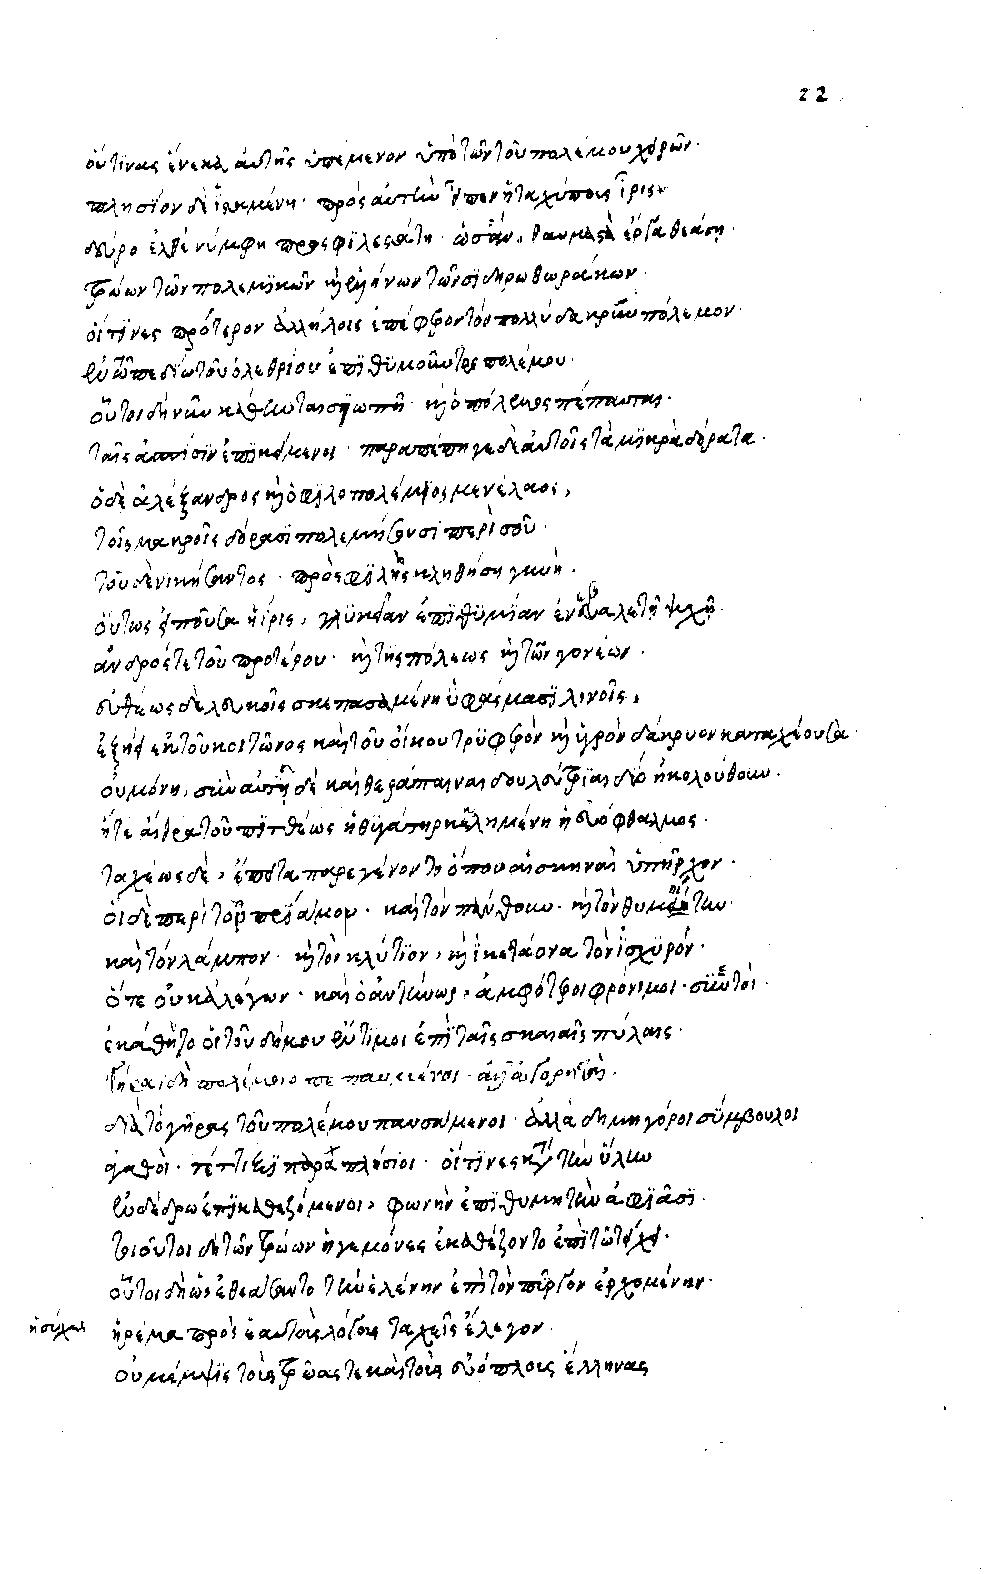 22
οὕτϊνας ἕνεκα ἀυτῆς ὑπέμενον ὑπὸ τῶν τοῦ πολέμου χειρῶν·
πλησίον δὲ ἱσταμένη· πρὸς αὐτὴν εἶπεν ἡ ταχύπους ἶρις·
δεῦρο ἐλθὲ νύμφη προσφϊλεστάτη· ὡς ἂν, θαυμαστὰ ἔργα θεάση·
τρώων τῶν πολεμϊκῶν καὶ ἑλλήνων τῶν σϊδηροθωράκων·
οἵ τϊνες πρότερον ἀλλήλοις ἐπέφερον τὸν πολλύδακρυν πόλεμον·
ἐν τῶ πεδίω τοῦ ὀλεθρίου ἐπϊθυμοῦντες πολέμου·
οὗτοι δὴ νῦν κάθηνται σϊωπῆ· καὶ ὁ πόλεμος πέπαυται·
ταῖς ἀσπίσϊν ἐπϊκείμενοι· παραπέπηγε δὲ ἀυτοῖς τὰ μϊκρὰ δόρατα·
ὁ δὲ ἀλέξανδρος καὶ ὁ φϊλοπόλεμος μενέλαος,
τοῖς μακροῖς δόρασϊ πολεμήσουσϊ περὶ σοῦ·
τοῦ δὲ νικήσαντος· προσφϊλὴς κληθήση γυνή·
οὕτως εἰποῦσα ἡ ἶρις, γλυκεῖαν ἐπϊθυμίαν ἐνέβαλε τῆ ψυχῆ·
ἀνδρός τε τοῦ προτέρου· καὶ τῆς πόλεως καὶ τῶν γονέων·
εὐθέως δὲ λευκοῖς σκεπασαμένη ὑφάσμασϊ λινοῖς,
ἐξήει ἐκ τοῦ κοιτῶνος καὶ τοῦ οἴκου τρυφερὸν καὶ ὑγρὸν δάκρυον καταχέουσα·
οὐ μόνη, σὺν αὐτῆ δὲ καὶ θεράπαιναι δουλεύτριαι δύο ἠκολούθουν·
ἥτε αἴθρα τοῦ πϊτθέως ἡ θυγάτηρ καὶ κλυμένη ἡ εὐόφθαλμος·
ταχέως δὲ, ἔπειτα παρεγένοντο ὅπου αἱ σκηναὶ ὑπῆρχον·
οἱ δὲ περὶ τὸν πρίαμον· καὶ τὸν πάνθουν· καὶ τὸν θυμοίτην·
καὶ τὸν λάμπον· καὶ τὸν κλύτϊον, καὶ ἱκετάονα τὸν ἰσχυρόν·
ὅ τε οὐκαλέγων· καὶ ὁ ἀντήνωρ, ἀμφότεροι φρόνιμοι· συνετοὶ·
ἐκάθηντο οἱ τοῦ δήμου ἔντϊμοι ἐπὶ ταῖς σκαιαῖς πύλαις·
διὰ τὸ γῆρας τοῦ πολέμου παυσάμενοι· ἀλλὰ δημηγόροι σύμβουλοι
ἀγαθοὶ· τέττιξϊ παραπλήσιοι· οἵ τϊνες κατὰ τὴν ὕλην
ἐν δένδρω ἐπϊκαθεζόμενοι, φωνὴν ἐπϊθυμητὴν ἀφϊᾶσϊ·
τοιοῦτοι δὴ τῶν τρώων ἡγεμόνες ἐκαθέζοντο ἐπὶ τῶ τείχει·
οὗτοι δὴ ὡς ἐθεάσαντο τὴν ἑλένην ἐπὶ τὸν πύργον ἐρχομένην·
ἡσύχως ἠρέμα πρὸς ἑαυτοὺς λόγους ταχεῖς ἔλεγον·
οὐ μέμψις τοὺς τρῶας τε καὶ τοὺς εὐόπλους ἕλληνας